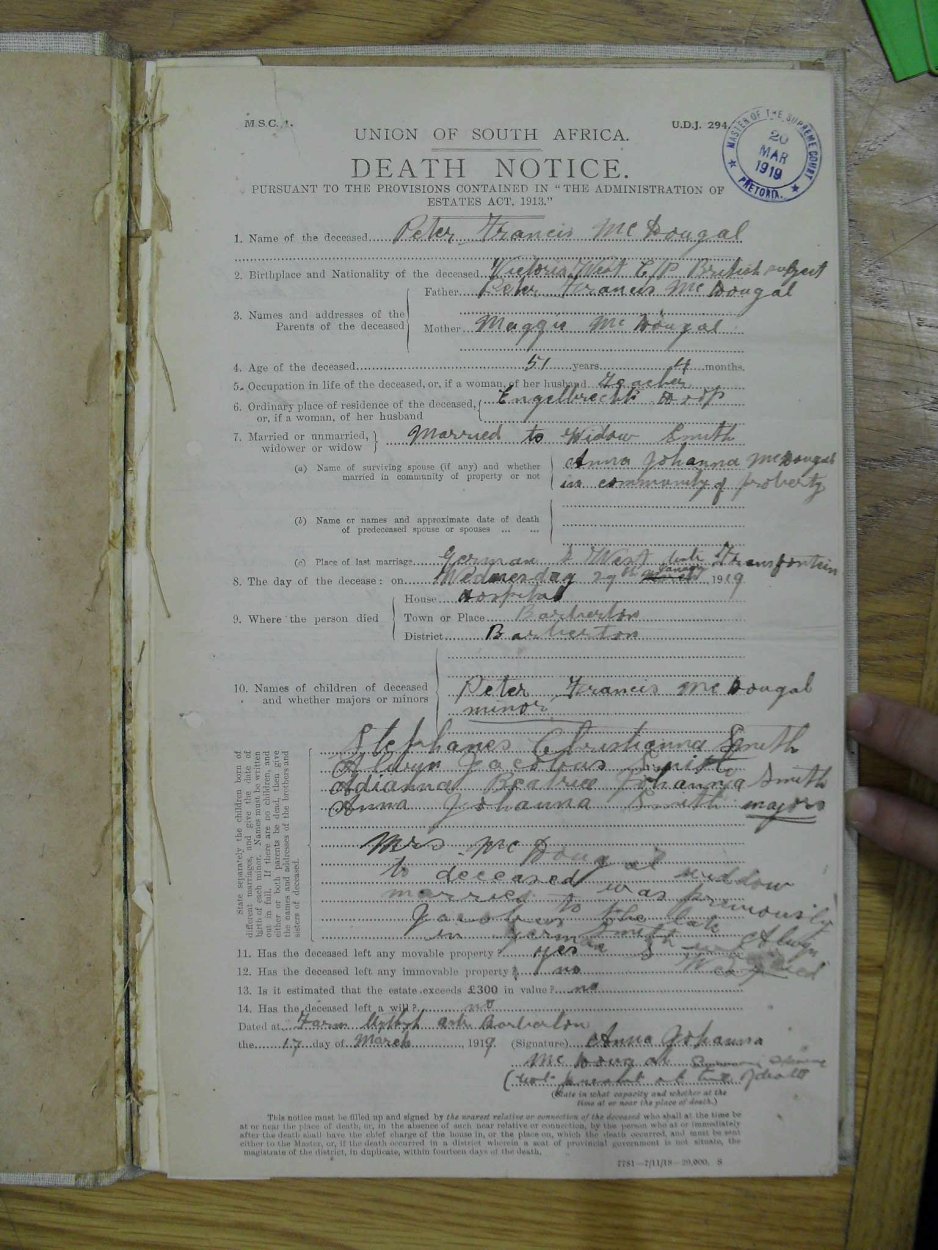 M.S.C. 1.
U.D.J. 294.
MASTER OF THE SUPREME COURT
20
MAR
1919
PRETORIA.
UNION OF SOUTH AFRICA.
DEATH NOTICE.
PURSUANT TO THE PROVISIONS CONTAINED IN "THE ADMINISTRATION OF
ESTATES ACT, 1913."
1. Name of the deceased Peter Francis McDougal
2. Birthplace and Nationality of the deceased Victoria West C/P British subject
3. Names and addresses of the Parents of the deceased
Father Peter Francis McDougal
Mother Maggie McDougal
4. Age of the deceased 51 years 4 months.
5. Occupation in life of the deceased, or, if a woman, of her husband Teacher
6. Ordinary place of residence of the deceased, or, if a woman, of her husband
Engelbrechts Drift
7. Married or unmarried, widower or widow
Married to Widow Smith
(a) Name of surviving spouse (if any) and whether married in community of property or not
Anna Johanna McDougal
in community of property
(b) Name or names and approximate date of death of predeceased spouse or spouses ... ...
(c) Place of last marriage German S West
8. The day of the decease: on Wednesday 29th January 1919
9. Where the person died
House Hospital
Town or Place Barberton
District Barberton
10. Names of children of deceased and whether majors or minors
Peter Francis McDougal
minor
State separately the children born of different marriages, and give the date of birth of each minor. Names must be written out in full. If there are no children, and either or both parents be dead, then give the names and addresses of the brothers and sisters of deceased.
Stephanes Christianna Smith
Alwyn Jacobus Smith
Adrianna Beatrix Johanna Smith
Anna Johanna Smith majors
Mrs McDougal widow
to deceased was previously
married to the late
Jacobus Smith
in German S W Africa
11. Has the deceased left any movable property? yes
12. Has the deceased left any immovable property? no
13. Is it estimated that the estate exceeds £300 in value? no
14. Has the deceased left a will? no
Dated at Farm Barberton
the 17 day of March, 1919 (Signature) Anna Johanna
McDougal Surviving Spouse
(Not present at time of death
(State in what capacity and whether at the
time at or near the place of death.)
This notice must be filled up and signed by the nearest relative or connection of the deceased who shall at the time be
at or near the place of death, or, in the absence of such near relative or connection, by the person who at or immediately
after the death shall have the chief charge of the house in, or the place on, which the death occurred, and must be sent
either to the Master, or, if the death occurred in a district wherein a seat of provincial government is not situate, the
magistrate of the district, in duplicate, within fourteen days of the death.
7781—7/11/18—20,000. S